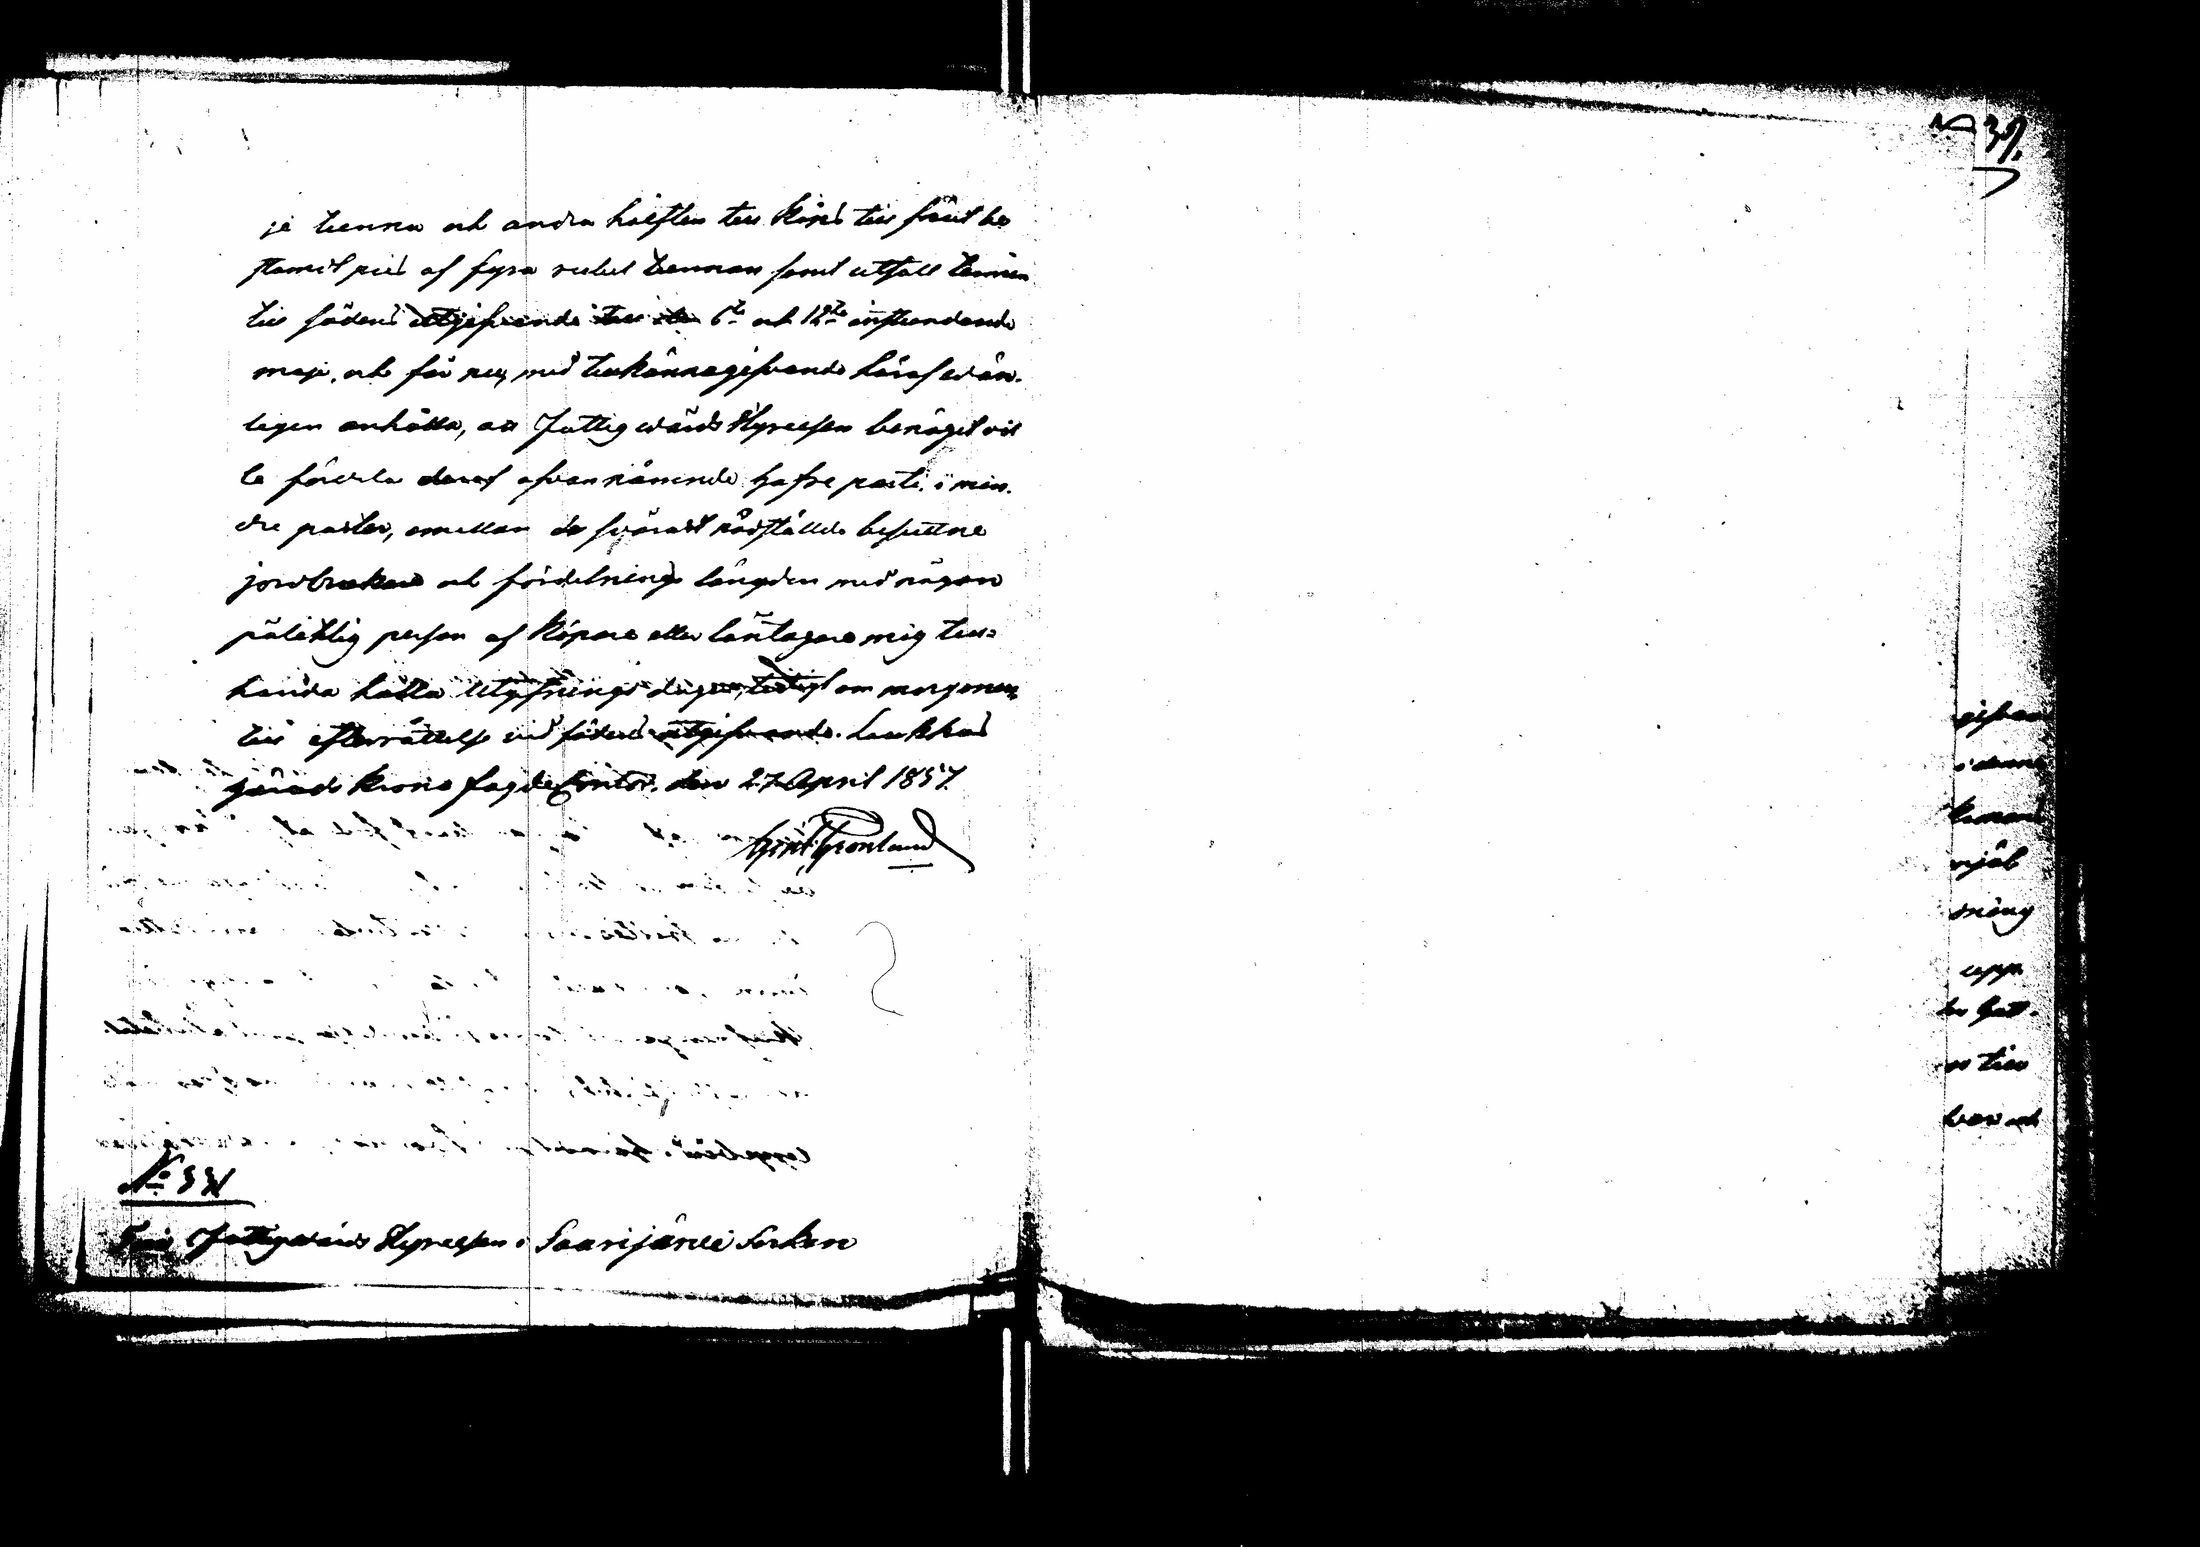 je tunna och andra hälften till köps till förut be
stämdt pris af fyra rubel tunnan samt utsatt termin
till sädens utgifvande till den 6te och 12te instundande
maji, och får nu, med tillkännagifvande häraf vän-
ligen anhålla, att Fattigvårds Styrelsen benäget vil
le fördela deraf ofvannämnde hafre parti i min-
dre poster, emellan de svårast nödställde besuttne
jordbrukare och fördelnings längden med någon
pålitlig person af köpare eller låntagare mig till-
handa hålla utgifnings dagen, tidigt om morgonen,
till efterrättelse vid sädens utgifvande. Laukkas
härads Krono fogde Contor, den 27 April 1857.
Grönlund
No 331
Till Fattigvårds Styrelsen i Saarijärvi Socken
39.
gifvan
i denna
mjöl
ning
upp
n till
och